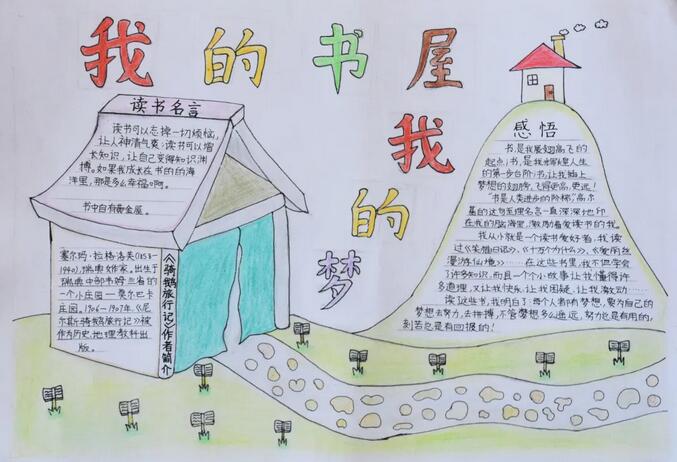 我的书屋
我的梦
读书名言
读书可以忘掉一切烦恼,
让人神清气爽;读书可以增
长知识,让自己变得知识渊
博。如果我成长在书的的海
洋里,那是多么幸福啊。
书中自有黄金屋。
塞尔玛·拉格洛芙(1858-
1940),瑞典女作家。出生于
瑞典中部韦姆兰省的
一个小庄园—莫尔巴卡
庄园。1906-1907年,《尼
尔斯骑鹅旅行记》被
作为历史,地理教科出
版。
《骑鹅旅行记》作者简介
感悟
书,是我展翅高飞的
起点;书,是我辉煌人生
的第一步台阶;书,让我插上
梦想的翅膀,飞得更高,更远!
“书是人类进步的阶梯,”高尔
基的这句至理名言一直深深地印
在我的脑海里,激励着爱读书的我。
我从小就是一个读书爱好者,我读
过《笑猫日记》、《十万个为什么》、《爱丽丝
漫游仙境》……在这些书里,我不但学会
了许多知识,而且一个个小故事让我懂得许
多道理,又让我快乐,让我困疑,让我激动……
读这些书,我明白了:每个人都有梦想,要为自己的
梦想去努力,去拼搏,不管梦想多么遥远,努力也是有用的,
刻苦也是有回报的!